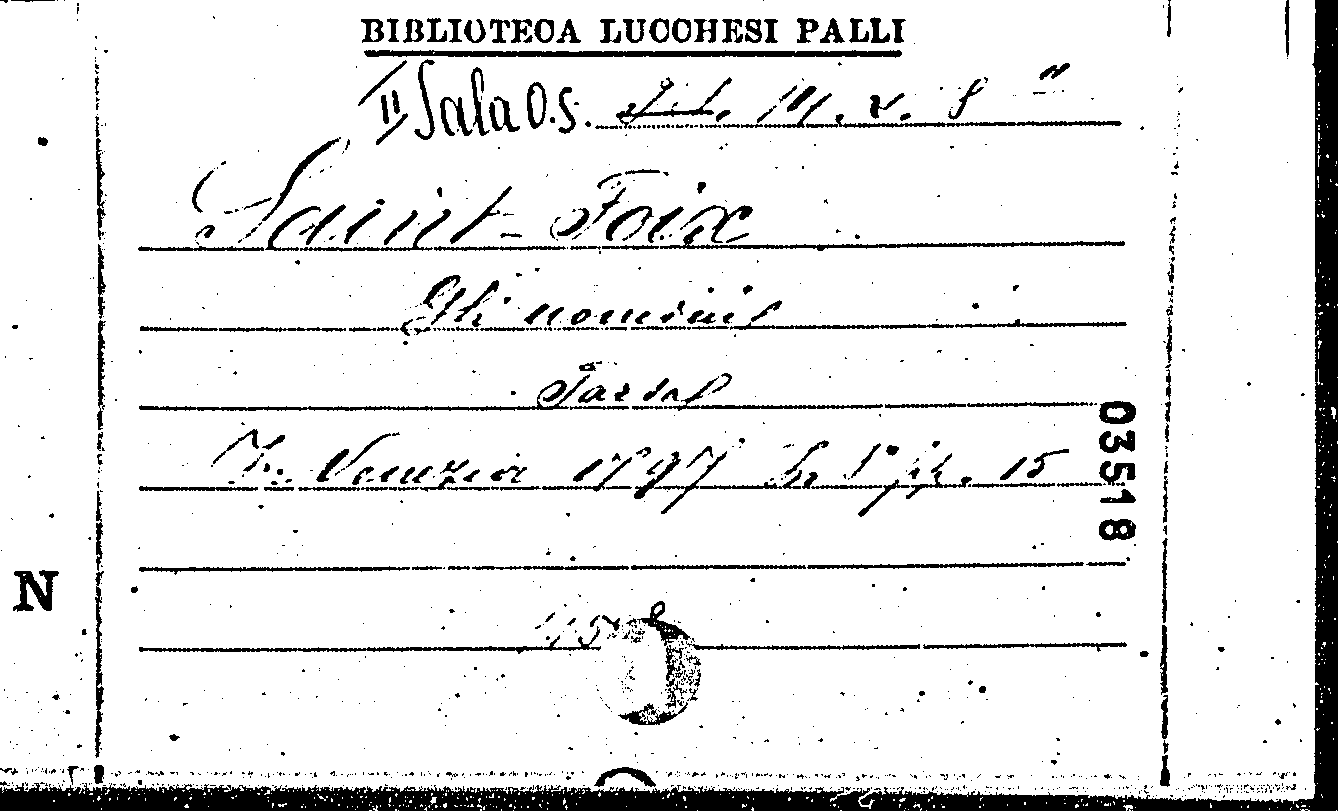 BIBLIOTECA LUCCHESI PALLI
II Sala O.S.
Saint-Foix
Gli uomini
Farsa
Venezia 1797 In 8° pp. 15
03518
N